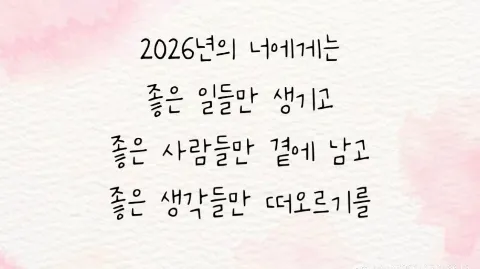 2026년의 너에게는
좋은 일들만 생기고
좋은 사람들만 곁에 남고
좋은 생각들만 떠오르기를